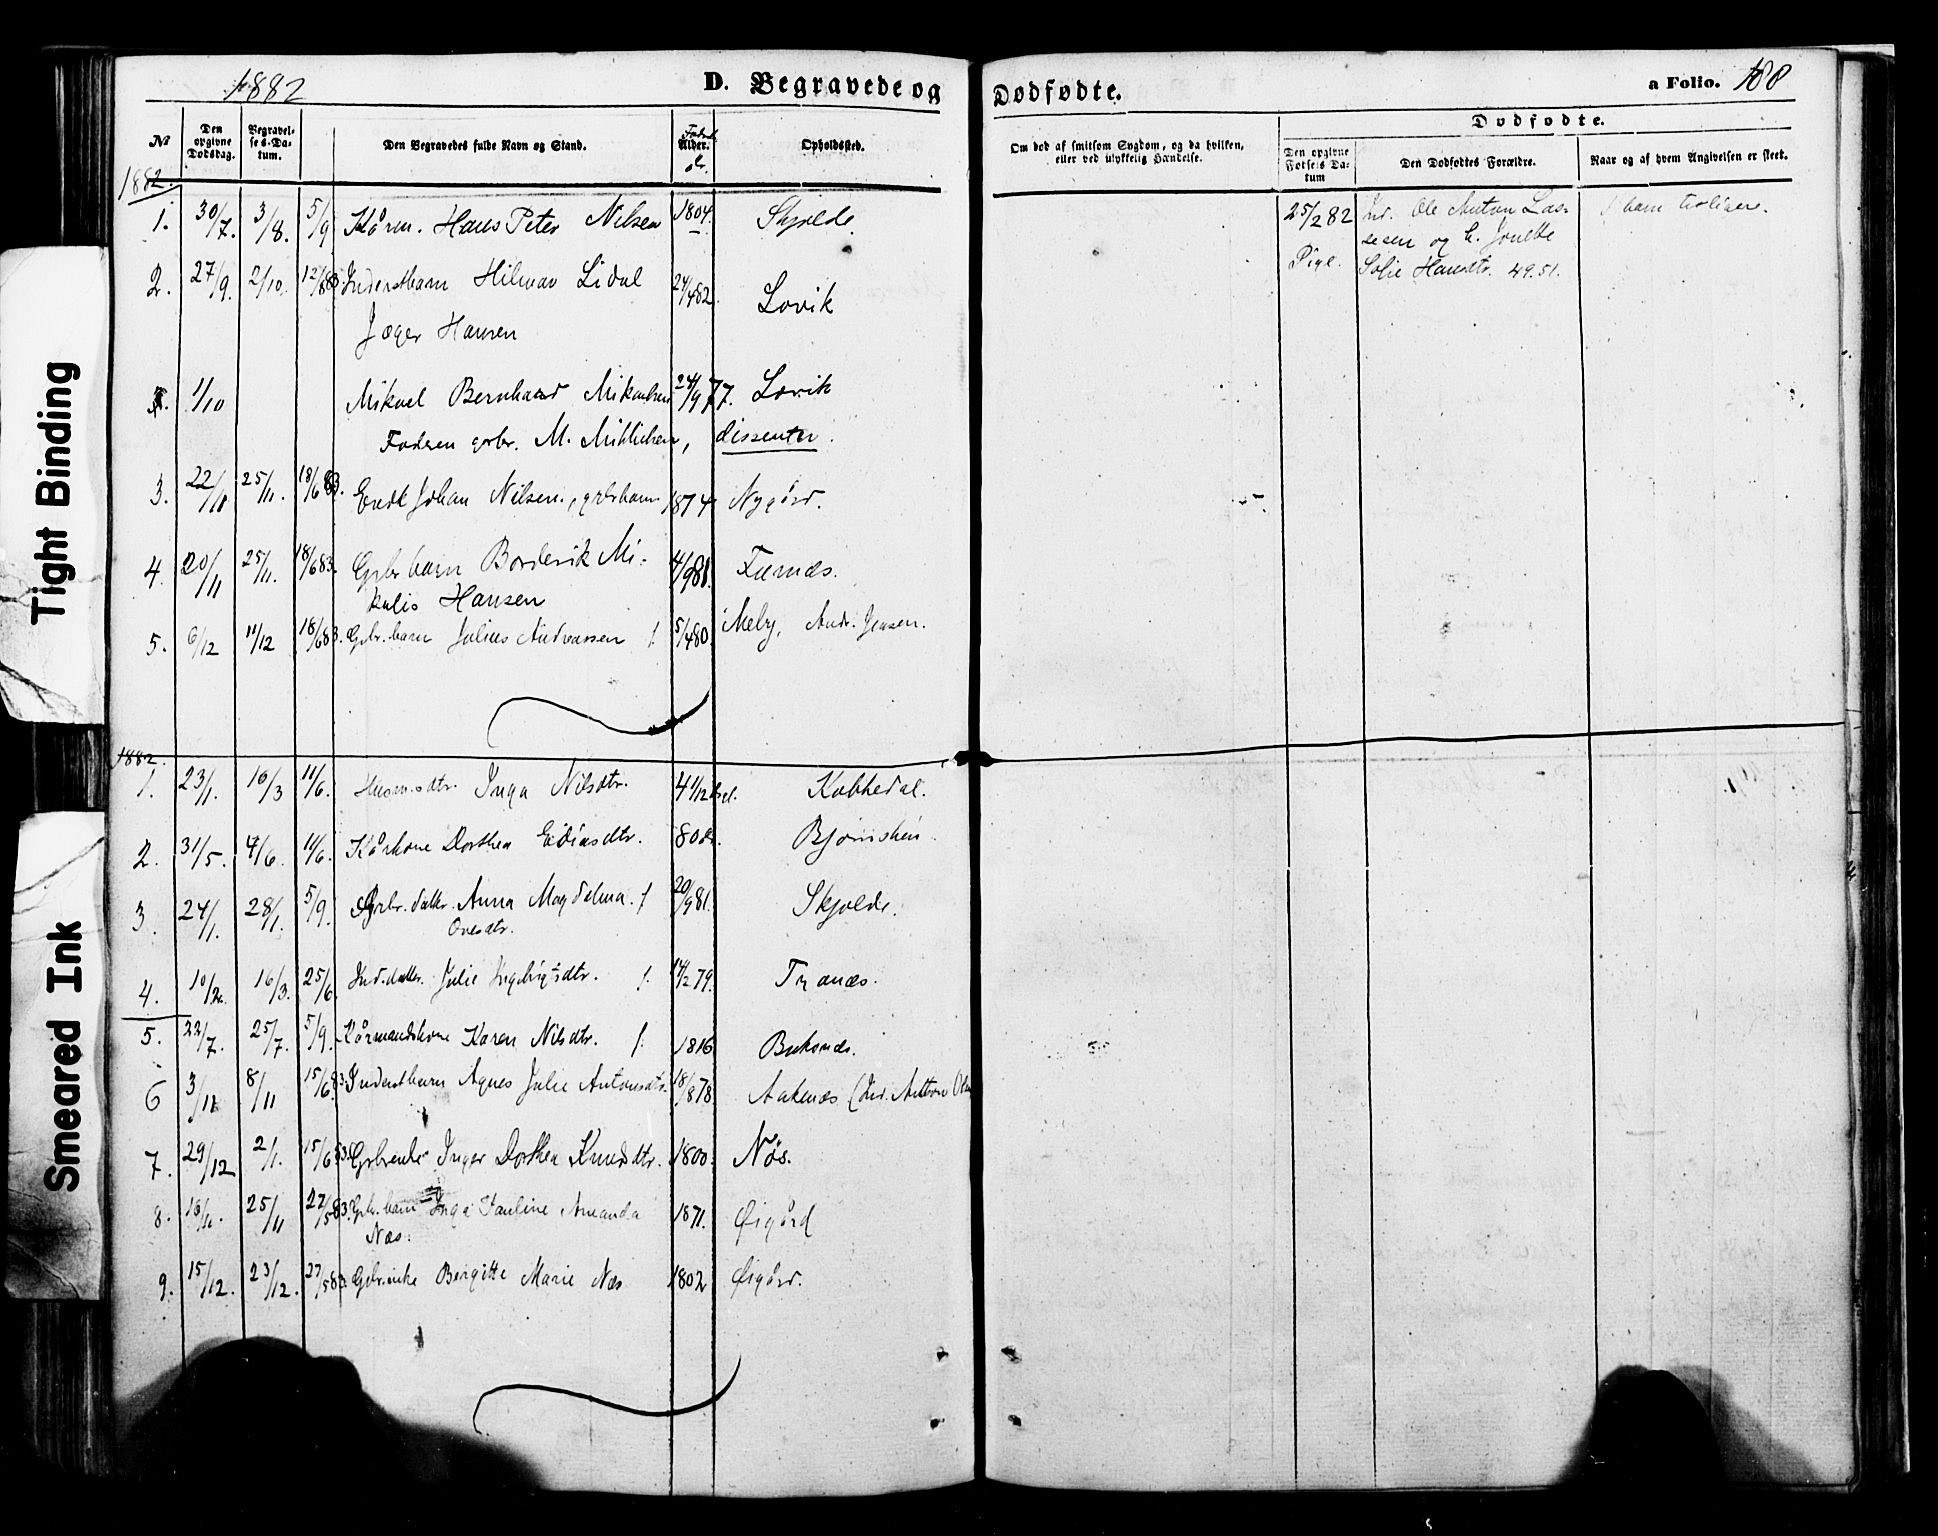 1882
D. Begravede og
Dødfødte.
a Folio. 188
No
Den opgivne Dødsdag.
Begravelses-Datum.
Den Begravedes fulde Navn og Stand.
Alder.
Opholdssted.
Om død af smitsom Sygdom, og da hvilken, eller ved ulykkelig Hændelse.
Dødfødte.
Den opgivne Fødsels Datum
Den Dødfødtes Forældre.
Naar og af hvem Angivelsen er skeet.
1882.
1. 30/7. 3/8. 5/9 Kårm. Hans Peter Nilsen 1804. Skjolde.
25/2 82 Ind. Ole Anton Las-
sesen og h.
Pige. Sofie Hansdtr. 49.51.
2. 27/9. 2/10. 12/883 Inderstbarn Hilmar Lidal 24/482 Lovik
Jæger Hansen
1/10 Mikael Bernhard Mikalsen 24/9 77. Lovik
Faderen grbr. M. , dissenter.
3. 22/11 25/11. 18/683. Johan Nilsen, grbrbarn 1874 Nygård.
4. 20/11 25/11. 18/683. Grbr barn Borderik Mi-
kalis Hansen 4/981.
5. 6/12 11/12 18/683. Grbr. barn Julius Andreassen f. 5/480. Meby, Andr. Jensen.
1882.
1. 23/1. 10/3 11/6. Husm.sdtr. Inga Nilsdtr. 4 1/12 Kobbedal.
2. 31/5. 4/6. 11/6. Kårkone Dorthea Ediasdtr. 80 år. Bjørnskin
3. 24/1. 28/1. 5/9. Grbr. datter. Anna Magdalena f 20/981. Skjolde.
Ovesdtr.
4. 10/2. 16/3. 25/6. Ind.datter. Julie Ingebrigtsdtr. f. 14/279. Tranæs.
5. 22/7. 25/7. 5/9. Kårmandskone Karen Nilsdtr. f. 1816
6 3/11 8/11 15/683 Inderstbarn Agnes Julie Antonsdtr. 18/878 Aakenæs (Ind. Anton
7. 29/12 2/1. 15/683. Grbrenke Inger Dorthea Knudsdtr. 1800. Nøs.
8. 18/11. 25/11 27/583. Grbr. barn Inga Pauline Amanda 1871. Øigård
Næs.
9. 15/12. 23/12. 27/583. Gbr.enke Bergitte Marie Næs 1802 Øigård.
Tight Binding
Smeared Ink